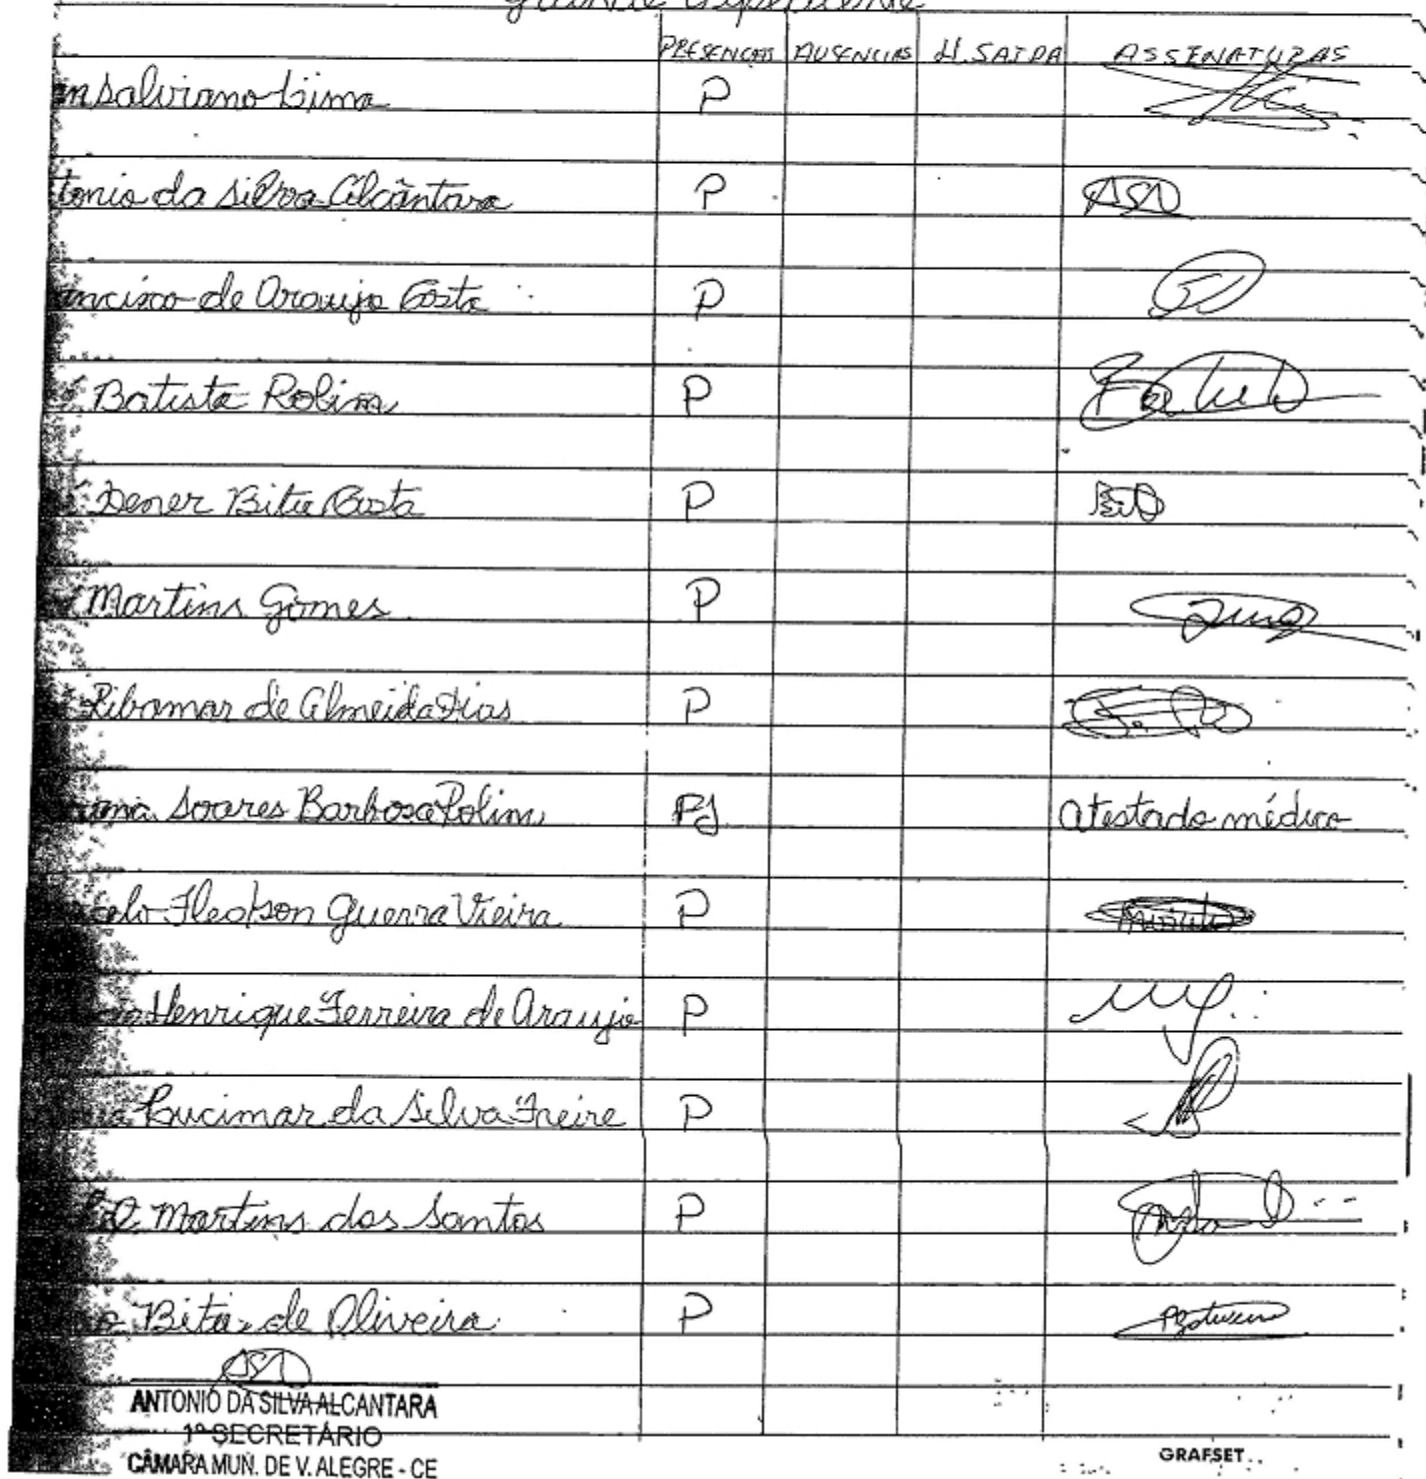 Grande Expediente
PRESENÇAS AUSENCIAS H. SAIDA ASSINATURAS
n Salviano Lima P
tonio da Silva Alcântara P ASA
ancisco de Araujo Costa P
Batista Rolim P Batista
Dener Bitu Costa P Bitu
Martins Gomes P
Ribamar de Almeida Dias P
Soares Barbosa Rolim PJ Atestado médico
celo Fledson Guerra Vieira P
Henrique Ferreira de Araujo P
Lucimar da Silva Freire P
Martins dos Santos P
Bitu de Oliveira P
ASA
ANTONIO DA SILVA ALCANTARA
1º SECRETÁRIO
CÂMARA MUN. DE V. ALEGRE - CE
GRAFSET